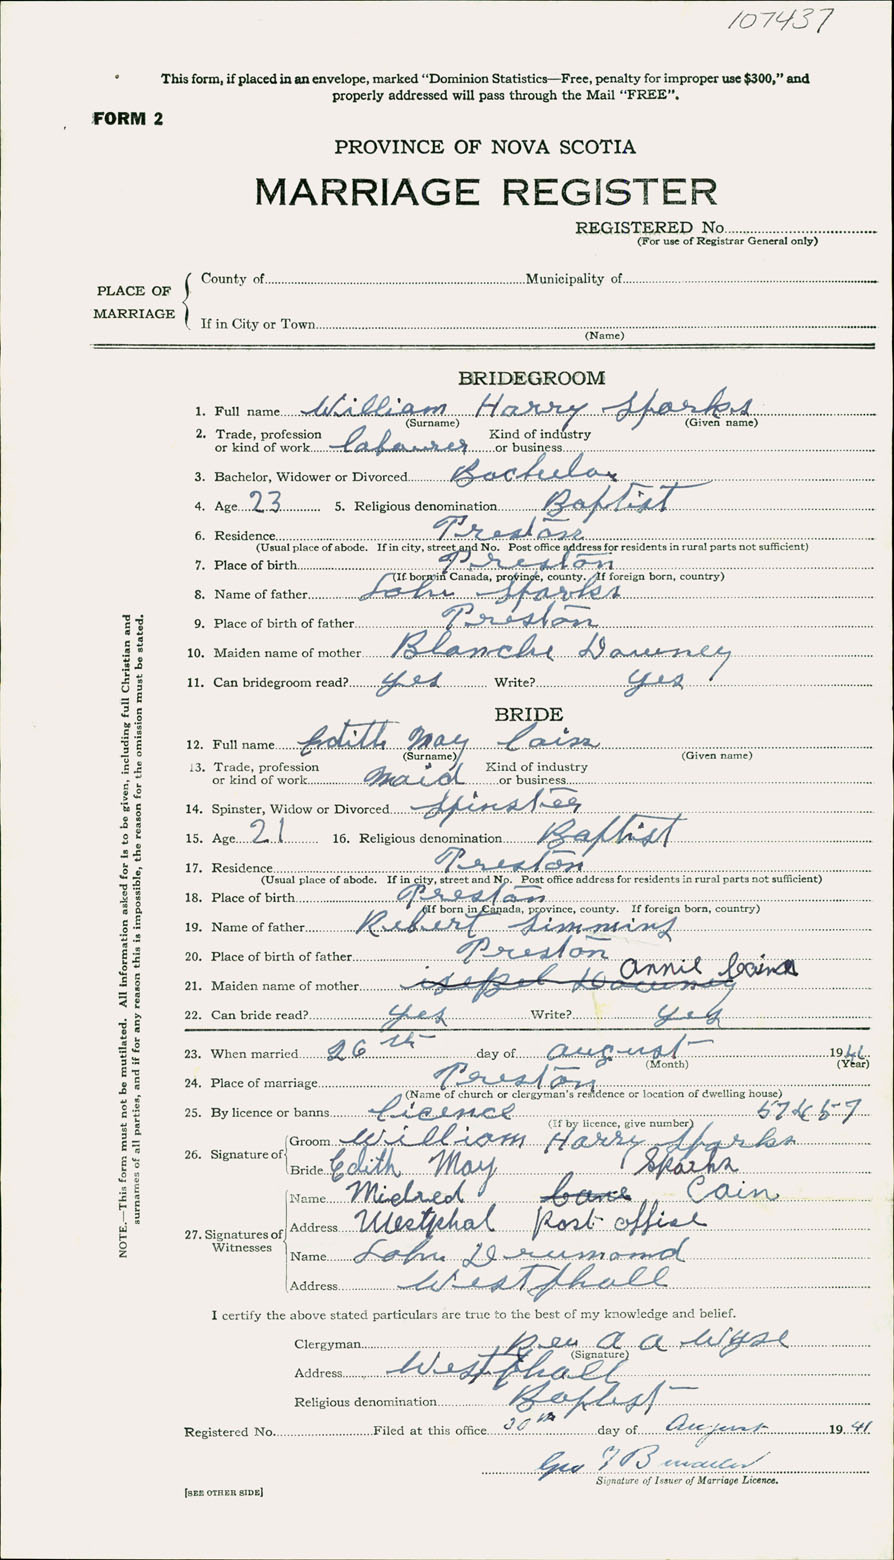 107437
This form, if placed in an envelope, marked "Dominion Statistics—Free, penalty for improper use $300," and
properly addressed will pass through the Mail "FREE".
FORM 2
PROVINCE OF NOVA SCOTIA
MARRIAGE REGISTER
REGISTERED No.
(For use of Registrar General only)
PLACE OF MARRIAGE
County of Municipality of
If in City or Town
(Name)
BRIDEGROOM
1. Full name William Harry Sparks
(Surname) (Given name)
2. Trade, profession or kind of work labourer Kind of industry or business
3. Bachelor, Widower or Divorced Bachelor
4. Age 23 5. Religious denomination Baptist
6. Residence Preston
(Usual place of abode. If in city, street and No. Post office address for residents in rural parts not sufficient)
7. Place of birth Preston
(If born in Canada, province, county. If foreign born, country)
8. Name of father John Sparks
9. Place of birth of father Preston
10. Maiden name of mother Blanche Downey
11. Can bridegroom read? yes Write? yes
BRIDE
12. Full name Edith May Cain
(Surname) (Given name)
13. Trade, profession or kind of work maid Kind of industry or business
14. Spinster, Widow or Divorced Spinster
15. Age 21 16. Religious denomination Baptist
17. Residence Preston
(Usual place of abode. If in city, street and No. Post office address for residents in rural parts not sufficient)
18. Place of birth Preston
(If born in Canada, province, county. If foreign born, country)
19. Name of father Robert Simmins
20. Place of birth of father Preston
21. Maiden name of mother Downey Annie
22. Can bride read? yes Write? yes
23. When married 26th day of August 1941
(Month) (Year)
24. Place of marriage Preston
(Name of church or clergyman's residence or location of dwelling house)
25. By licence or banns licence 57457
(If by licence, give number)
26. Signature of Groom William Harry Sparks
Bride Edith May Sparks
27. Signatures of Witnesses
Name Mildred Cain
Address Westphal Post office
Name John Drumond
Address Westphall
I certify the above stated particulars are true to the best of my knowledge and belief.
Clergyman Rev A A Wyse
(Signature)
Address Westphall
Religious denomination Baptist
Registered No. Filed at this office 30th day of August 1941
Geo
Signature of Issuer of Marriage Licence.
[SEE OTHER SIDE]
NOTE.—This form must not be mutilated. All information asked for is to be given, including full Christian and
surnames of all parties, and if for any reason this is impossible, the reason for the omission must be stated.